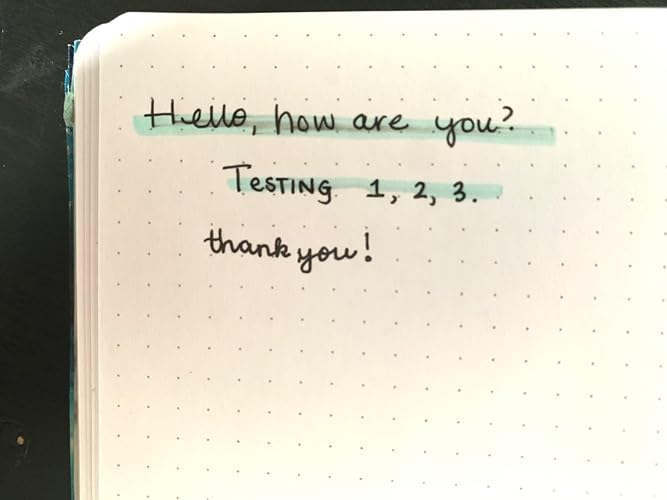 Hello, how are you?
TESTING 1, 2, 3.
thank you!